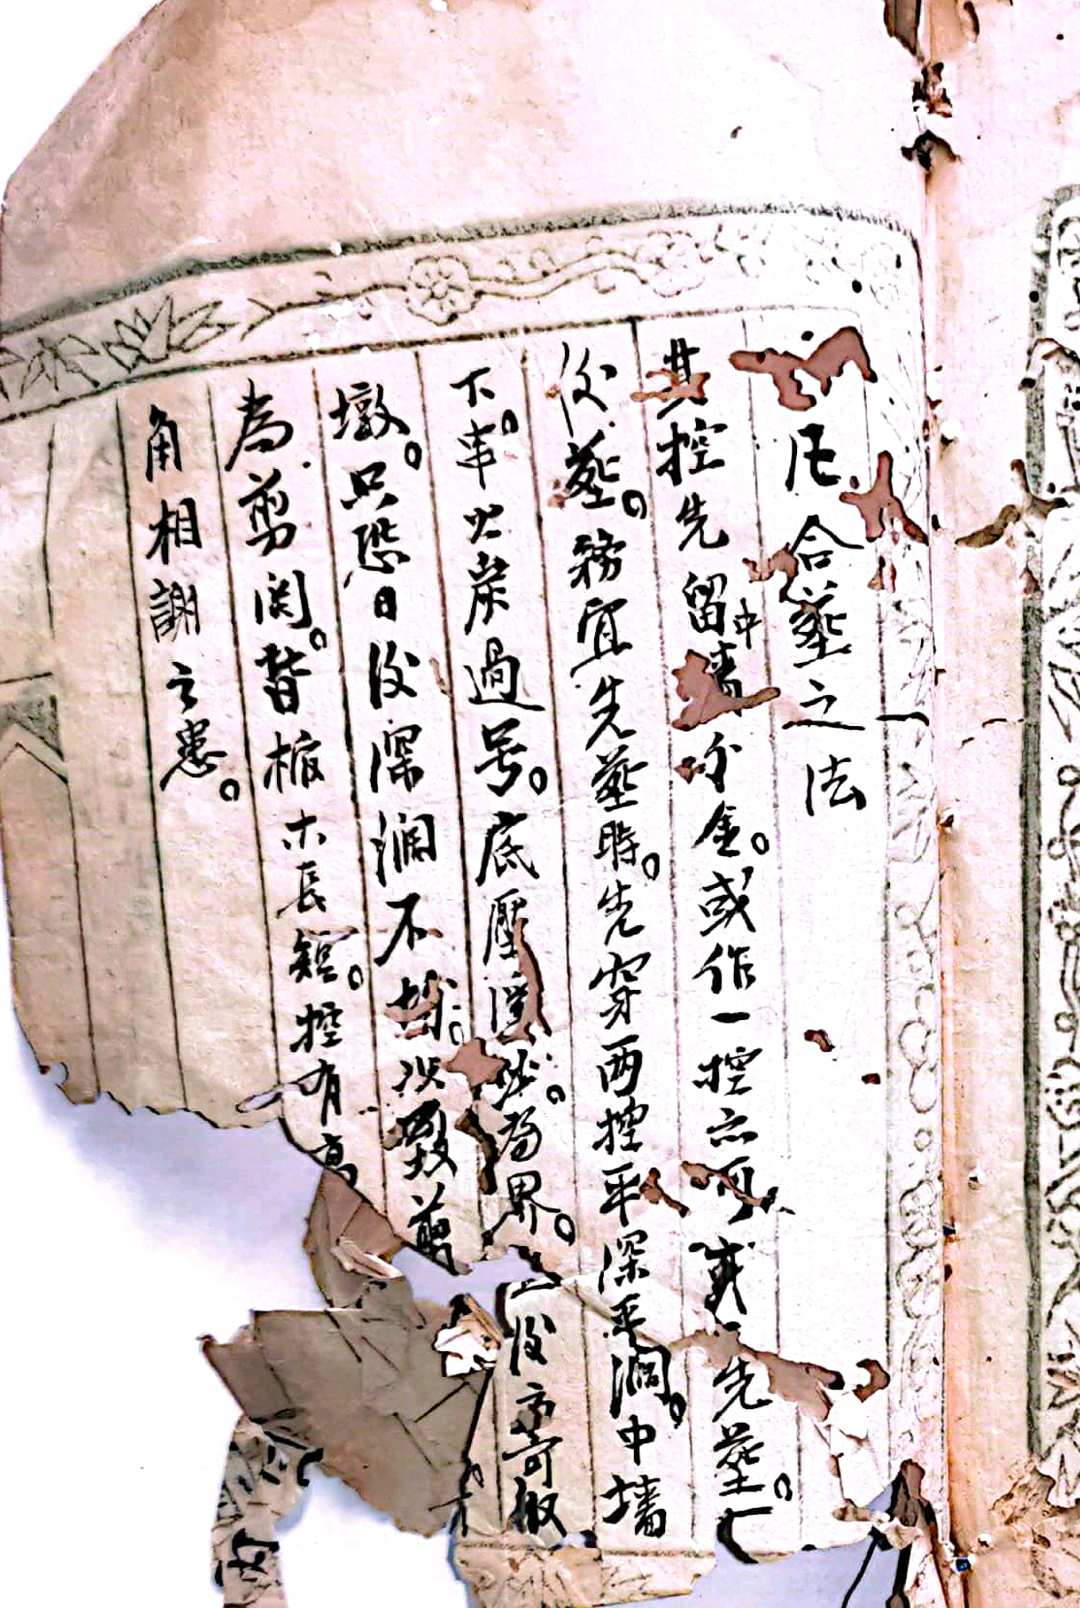 凡合塟之法
其控先留中墻分金。或作一控亦可或先塟。
後塟。務宜先塟時。先穿两控平深平濶。中墻
下。串火炭過号。底壓 為界。 後方可做
墩。只恐日後深濶不 。以致剪
為剪関。替棺木長短。控有高
角相謝之患。